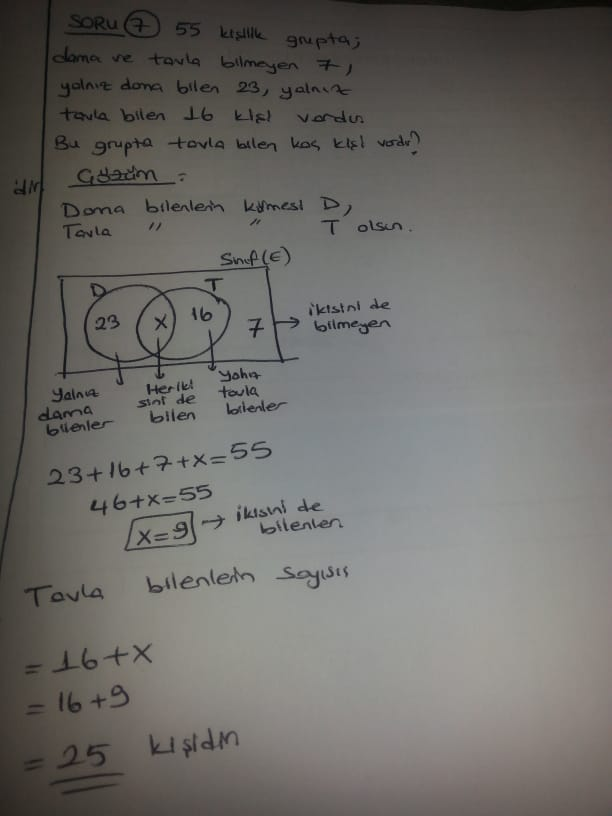 SORU 7 55 kişilik grupta;
dama ve tavla bilmeyen 7,
yalnız dama bilen 23, yalnız
tavla bilen 16 kişi vardır.
Bu grupta tavla bilen kaç kişi vardır?
dır.
Çözüm:
Dama bilenlerin kümesi D,
Tavla " " T olsun.
Sınıf(E)
D T
23 x 16 7
ikisini de
bilmeyen
Yalnız
dama
bilenler
Her iki
sini de
bilen
Yalnız
tavla
bilenler
23+16+7+x=55
46+x=55
x=9 → ikisini de
bilenler
Tavla bilenlerin sayısı
= 16+x
= 16+9
= 25 kişidir